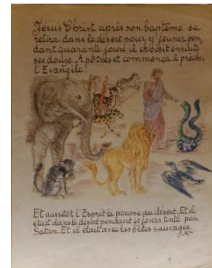 Jésus Christ après son baptême se
retira dans le désert pour y jeûner pen
dant quarante jours il choisit ensuite
ses douze Apôtres et commença à prêcher
l'Evangile.
Et aussitôt l'Esprit le pousse au désert. Et il
était dans le désert pendant 40 jours, tenté par
Satan. Et il était avec les bêtes sauvages.